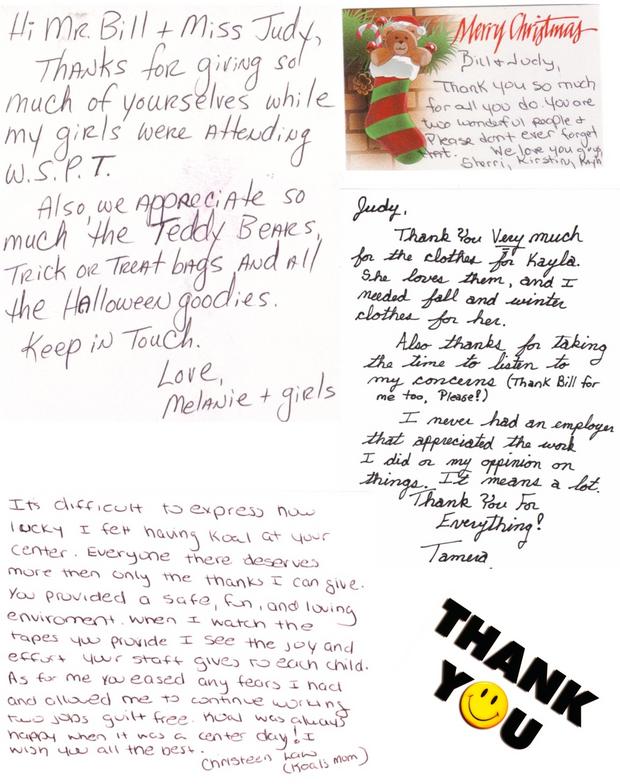 Hi Mr. Bill + Miss Judy,
Thanks for giving so
much of yourselves while
my girls were Attending
W.S.P.T.
Also, we Appreciate so
much the Teddy Bears,
Trick or Treat bags, And all
the Halloween goodies.
Keep in Touch.
Love,
Melanie + girls
Merry Christmas
Bill + Judy,
Thank you so much
for all you do. You are
two wonderful people &
Please don't ever forget
that. We love you guys
Sherri, Kirstin,
Judy,
Thank You Very much
for the clothes for Kayla.
She loves them, and I
needed fall and winter
clothes for her.
Also thanks for taking
the time to listen to
my concerns (Thank Bill for
me too, Please!)
I never had an employer
that appreciated the work
I did or my oppinion on
things. It means a lot.
Thank You For
Everything!
Tamera
Its difficult to express how
lucky I felt having Koal at your
center. Everyone there deserves
more then only the thanks I can give.
You provided a safe, fun, and loving
enviroment. When I watch the
tapes you provide I see the joy and
effort your staff gives to each child.
As for me you eased any fears I had
and allowed me to continue working
two jobs guilt free. Koal was always
happy when it was a center day! I
wish you all the best.
Christeen Law
(Koal's mom)
THANK
YOU